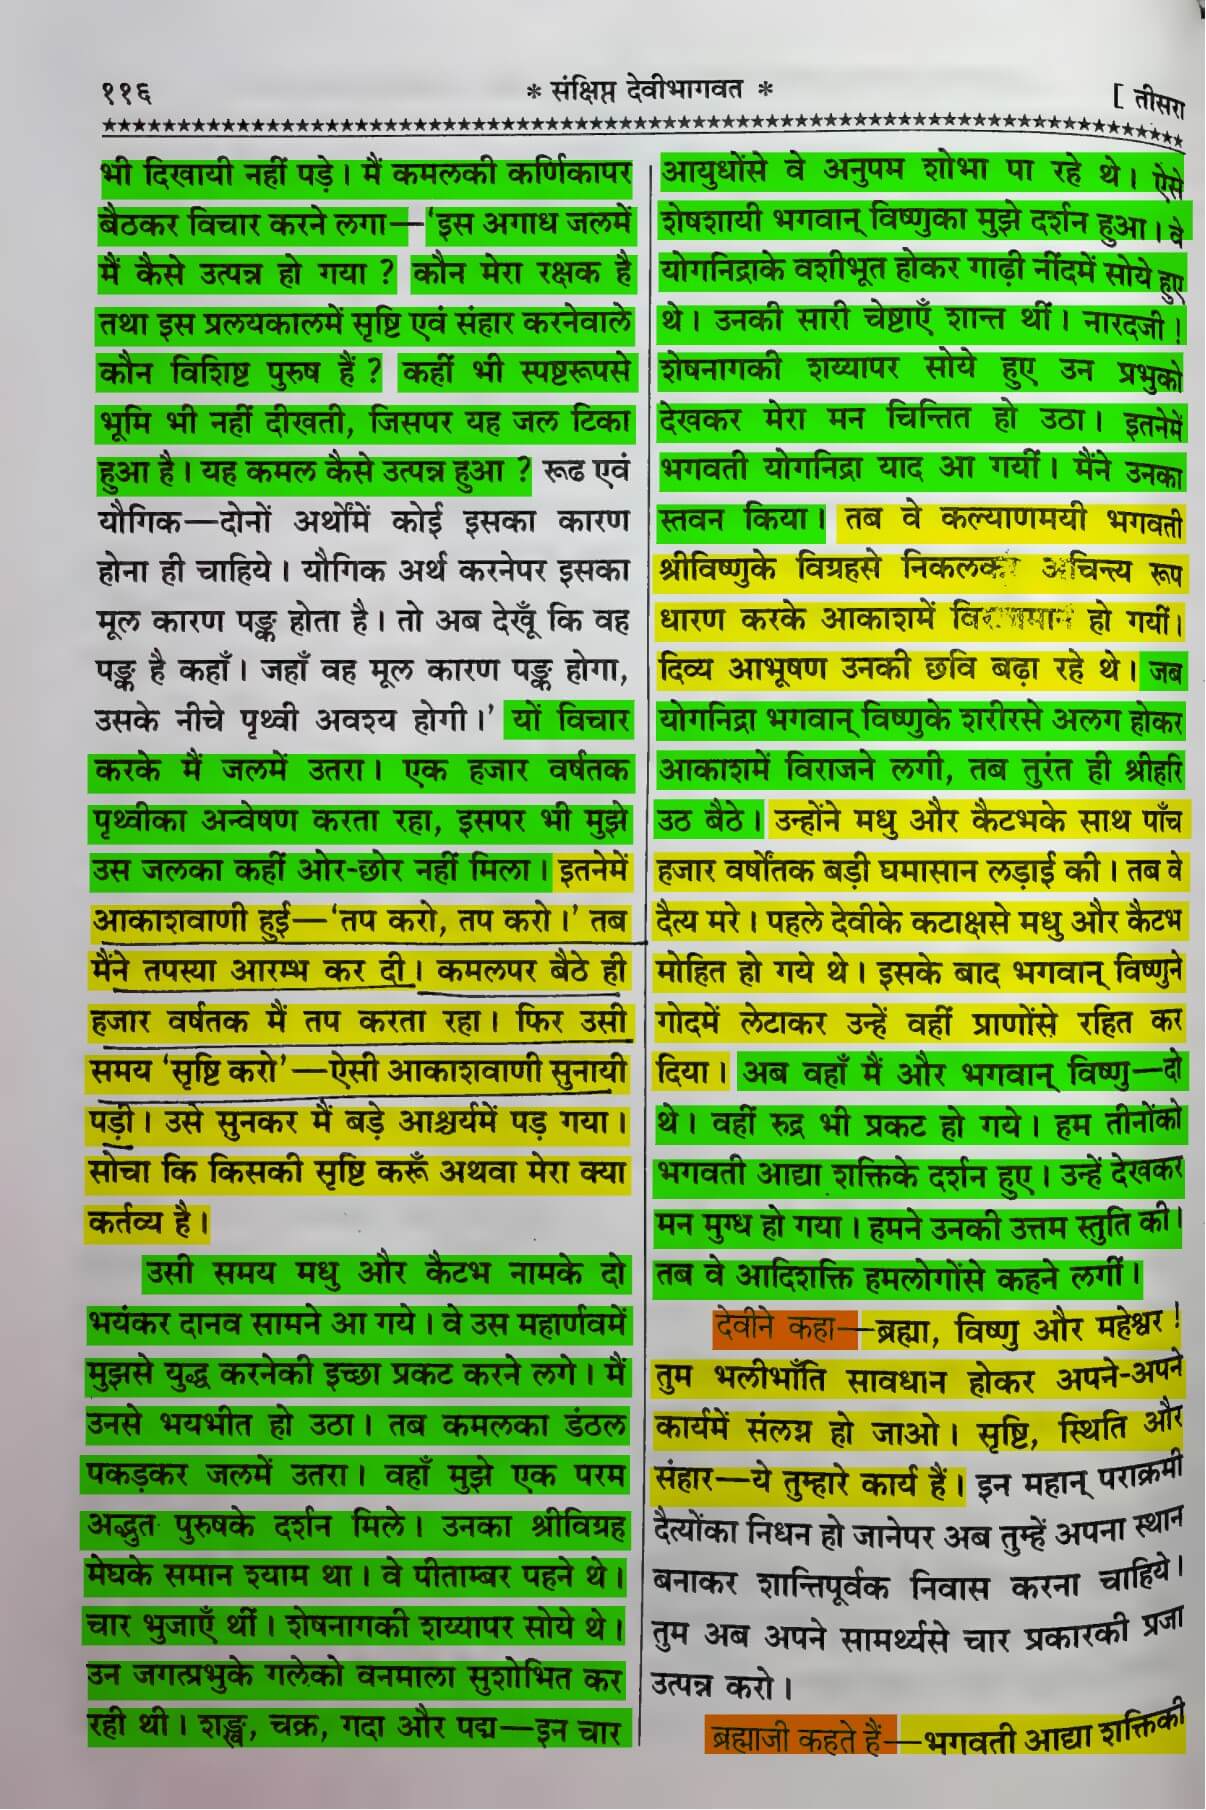 ११६
* संक्षिप्त देवीभागवत *
[ तीसरा
भी दिखायी नहीं पड़े। मैं कमलकी कर्णिकापर
बैठकर विचार करने लगा—‘इस अगाध जलमें
मैं कैसे उत्पन्न हो गया ? कौन मेरा रक्षक है
तथा इस प्रलयकालमें सृष्टि एवं संहार करनेवाले
कौन विशिष्ट पुरुष हैं ? कहीं भी स्पष्टरूपसे
भूमि भी नहीं दीखती, जिसपर यह जल टिका
हुआ है। यह कमल कैसे उत्पन्न हुआ ? रूढ एवं
यौगिक—दोनों अर्थोंमें कोई इसका कारण
होना ही चाहिये। यौगिक अर्थ करनेपर इसका
मूल कारण पङ्क होता है। तो अब देखूँ कि वह
पङ्क है कहाँ। जहाँ वह मूल कारण पङ्क होगा,
उसके नीचे पृथ्वी अवश्य होगी।’ यों विचार
करके मैं जलमें उतरा। एक हजार वर्षतक
पृथ्वीका अन्वेषण करता रहा, इसपर भी मुझे
उस जलका कहीं ओर-छोर नहीं मिला। इतनेमें
आकाशवाणी हुई—‘तप करो, तप करो।’ तब
मैंने तपस्या आरम्भ कर दी। कमलपर बैठे ही
हजार वर्षतक मैं तप करता रहा। फिर उसी
समय ‘सृष्टि करो’—ऐसी आकाशवाणी सुनायी
पड़ी। उसे सुनकर मैं बड़े आश्चर्यमें पड़ गया।
सोचा कि किसकी सृष्टि करूँ अथवा मेरा क्या
कर्तव्य है।
उसी समय मधु और कैटभ नामके दो
भयंकर दानव सामने आ गये। वे उस महार्णवमें
मुझसे युद्ध करनेकी इच्छा प्रकट करने लगे। मैं
उनसे भयभीत हो उठा। तब कमलका डंठल
पकड़कर जलमें उतरा। वहाँ मुझे एक परम
अद्भुत पुरुषके दर्शन मिले। उनका श्रीविग्रह
मेघके समान श्याम था। वे पीताम्बर पहने थे।
चार भुजाएँ थीं। शेषनागकी शय्यापर सोये थे।
उन जगत्प्रभुके गलेको वनमाला सुशोभित कर
रही थी। शङ्ख, चक्र, गदा और पद्म—इन चार
आयुधोंसे वे अनुपम शोभा पा रहे थे। ऐसे
शेषशायी भगवान् विष्णुका मुझे दर्शन हुआ। वे
योगनिद्राके वशीभूत होकर गाढ़ी नींदमें सोये हुए
थे। उनकी सारी चेष्टाएँ शान्त थीं। नारदजी!
शेषनागकी शय्यापर सोये हुए उन प्रभुको
देखकर मेरा मन चिन्तित हो उठा। इतनेमें
भगवती योगनिद्रा याद आ गयीं। मैंने उनका
स्तवन किया। तब वे कल्याणमयी भगवती
श्रीविष्णुके विग्रहसे निकलकर अचिन्त्य रूप
धारण करके आकाशमें विराजमान हो गयीं।
दिव्य आभूषण उनकी छवि बढ़ा रहे थे। जब
योगनिद्रा भगवान् विष्णुके शरीरसे अलग होकर
आकाशमें विराजने लगी, तब तुरंत ही श्रीहरि
उठ बैठे। उन्होंने मधु और कैटभके साथ पाँच
हजार वर्षोंतक बड़ी घमासान लड़ाई की। तब वे
दैत्य मरे। पहले देवीके कटाक्षसे मधु और कैटभ
मोहित हो गये थे। इसके बाद भगवान् विष्णुने
गोदमें लेटाकर उन्हें वहीं प्राणोंसे रहित कर
दिया। अब वहाँ मैं और भगवान् विष्णु—दो
थे। वहीं रुद्र भी प्रकट हो गये। हम तीनोंको
भगवती आद्या शक्तिके दर्शन हुए। उन्हें देखकर
मन मुग्ध हो गया। हमने उनकी उत्तम स्तुति की।
तब वे आदिशक्ति हमलोगोंसे कहने लगीं।
देवीने कहा—ब्रह्मा, विष्णु और महेश्वर!
तुम भलीभाँति सावधान होकर अपने-अपने
कार्यमें संलग्न हो जाओ। सृष्टि, स्थिति और
संहार—ये तुम्हारे कार्य हैं। इन महान् पराक्रमी
दैत्योंका निधन हो जानेपर अब तुम्हें अपना स्थान
बनाकर शान्तिपूर्वक निवास करना चाहिये।
तुम अब अपने सामर्थ्यसे चार प्रकारकी प्रजा
उत्पन्न करो।
ब्रह्माजी कहते हैं—भगवती आद्या शक्तिकी